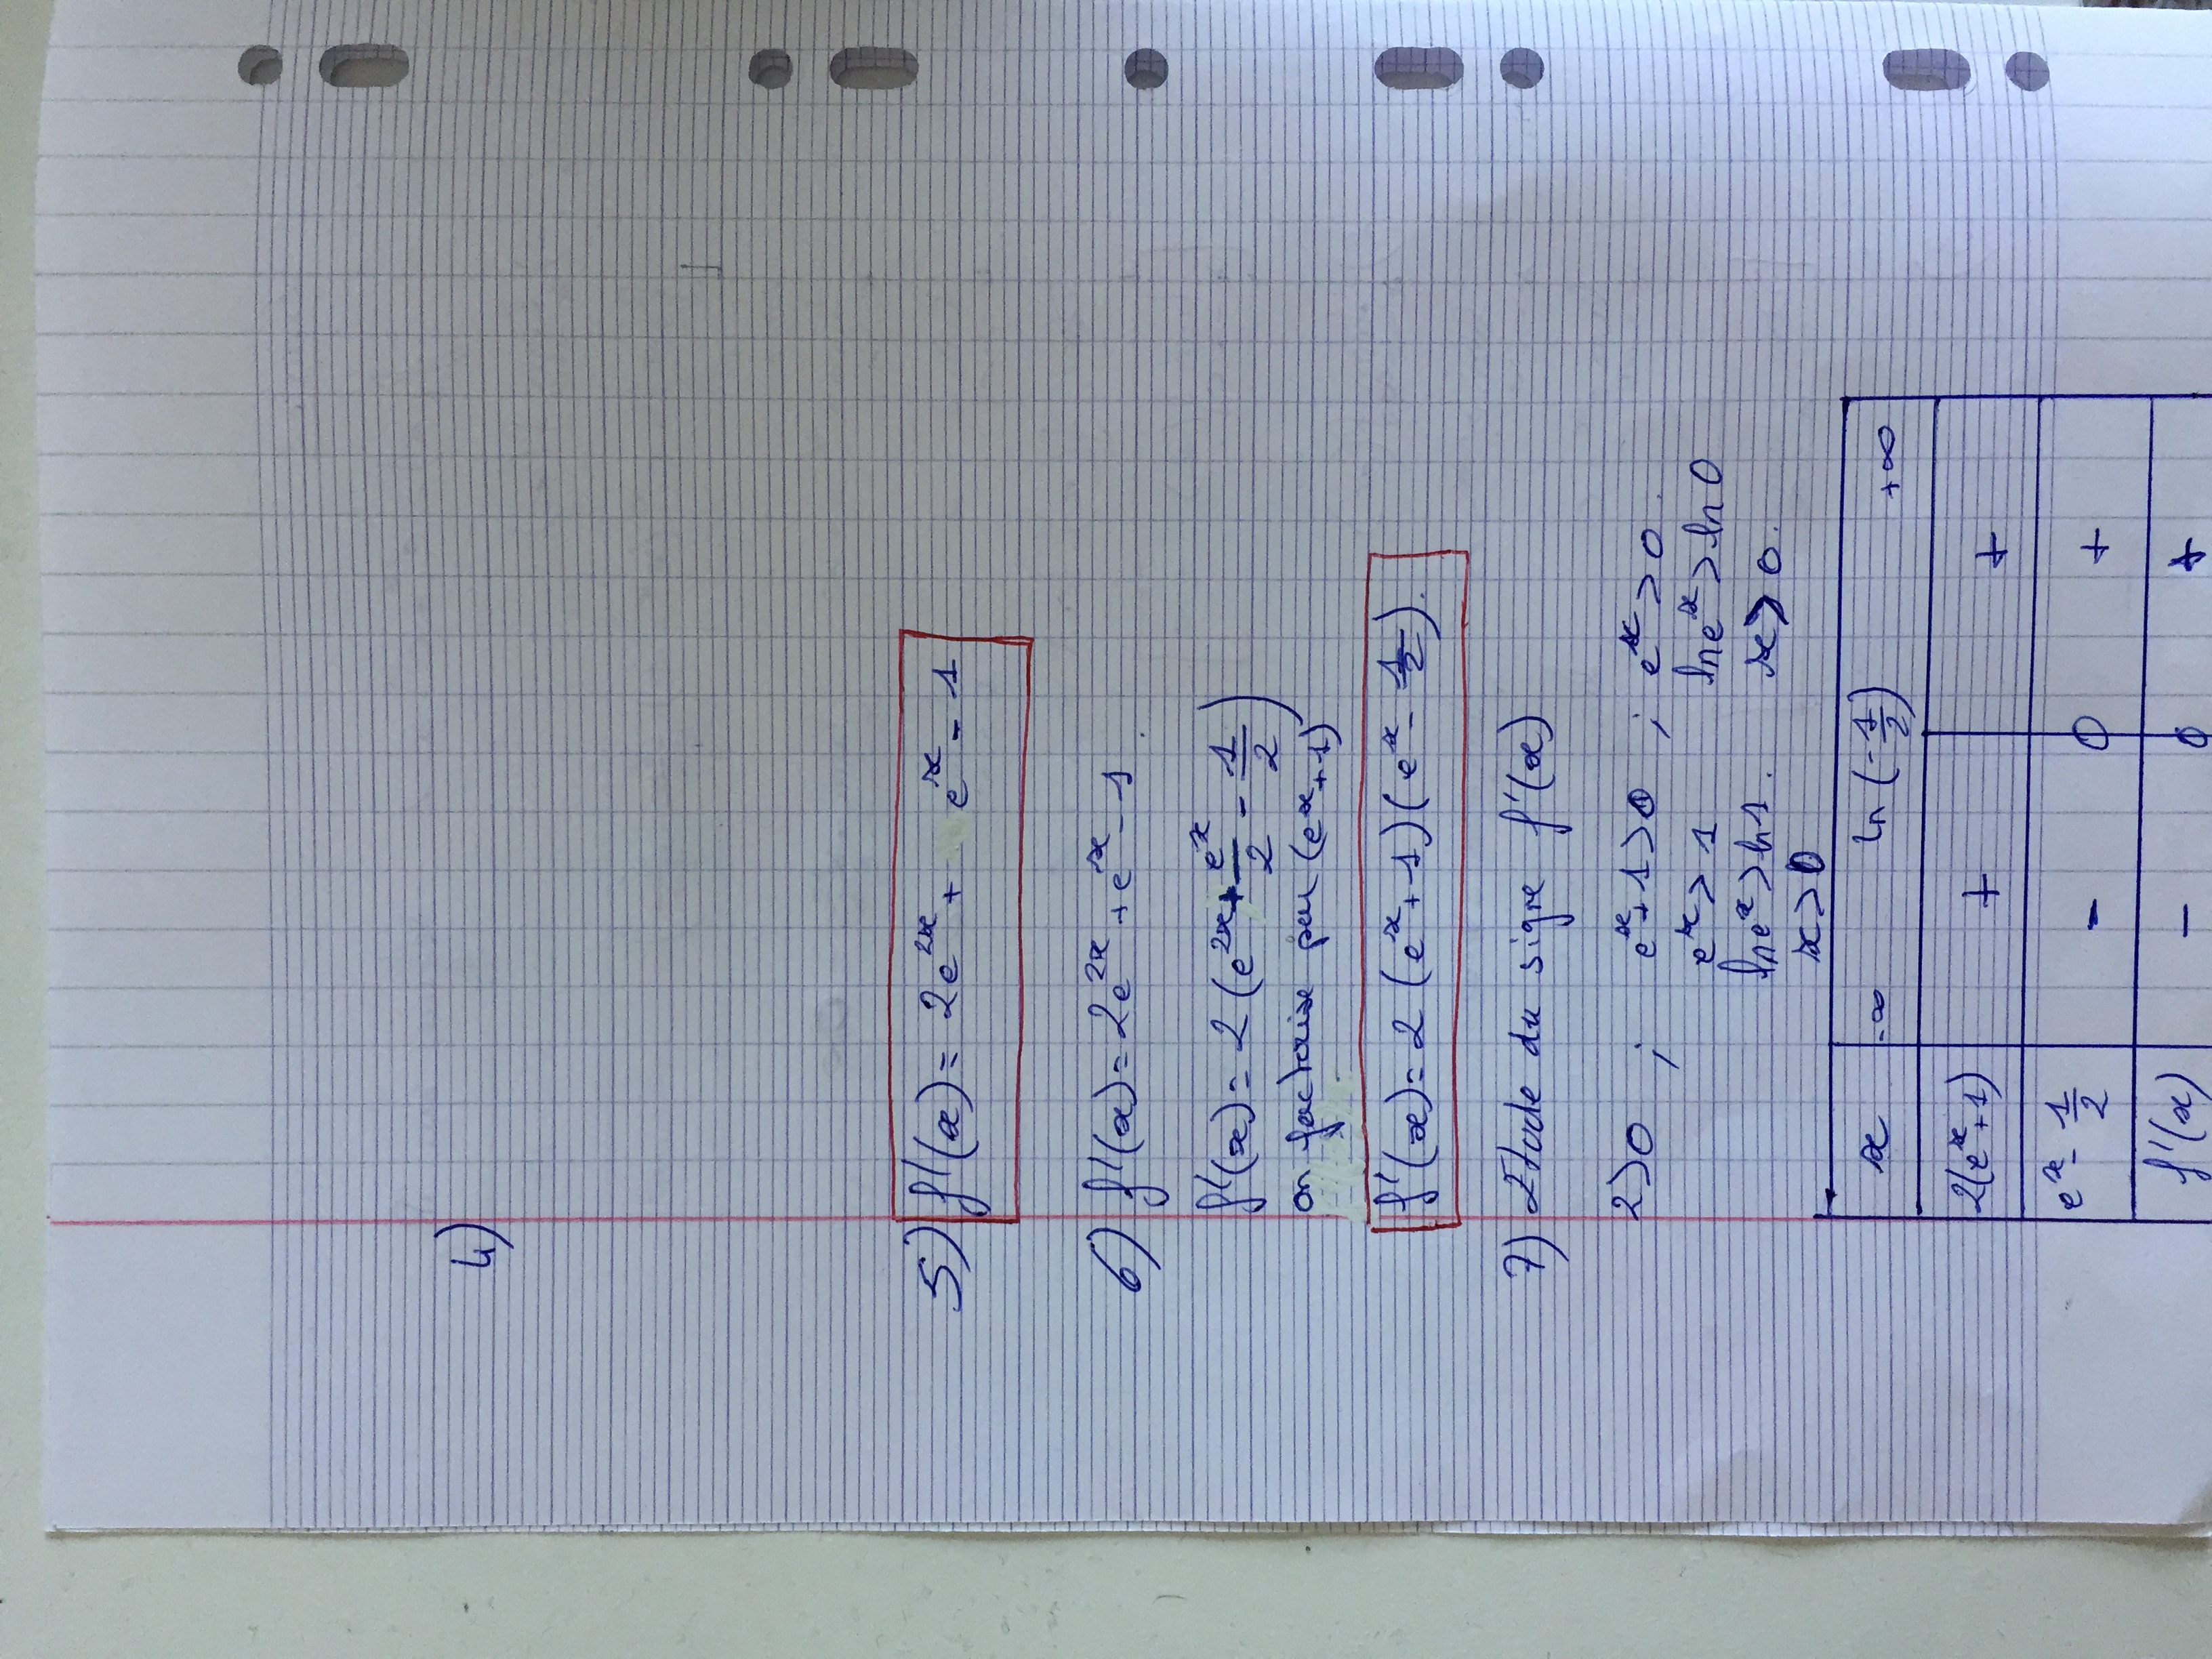 4)
5) f'(x) = 2e^{2x} + e^x - 1
6) f'(x) = 2e^{2x} + e^x - 1
f'(x) = 2 (e^{2x} + \frac{e^x}{2} - \frac{1}{2})
on factorise par (e^x + 1)
f'(x) = 2 (e^x + 1)(e^x - \frac{1}{2}).
7) Etude du signe f'(x)
2 > 0 ; e^x + 1 > 0 ; e^x > 0.
e^x > 1 ln e^x > ln 0
ln e^x > ln 1. x > 0.
x > 0
x -∞ ln (-\frac{1}{2}) +∞
2(e^x + 1) + +
e^x - \frac{1}{2} - 0 +
f'(x) - 0 +